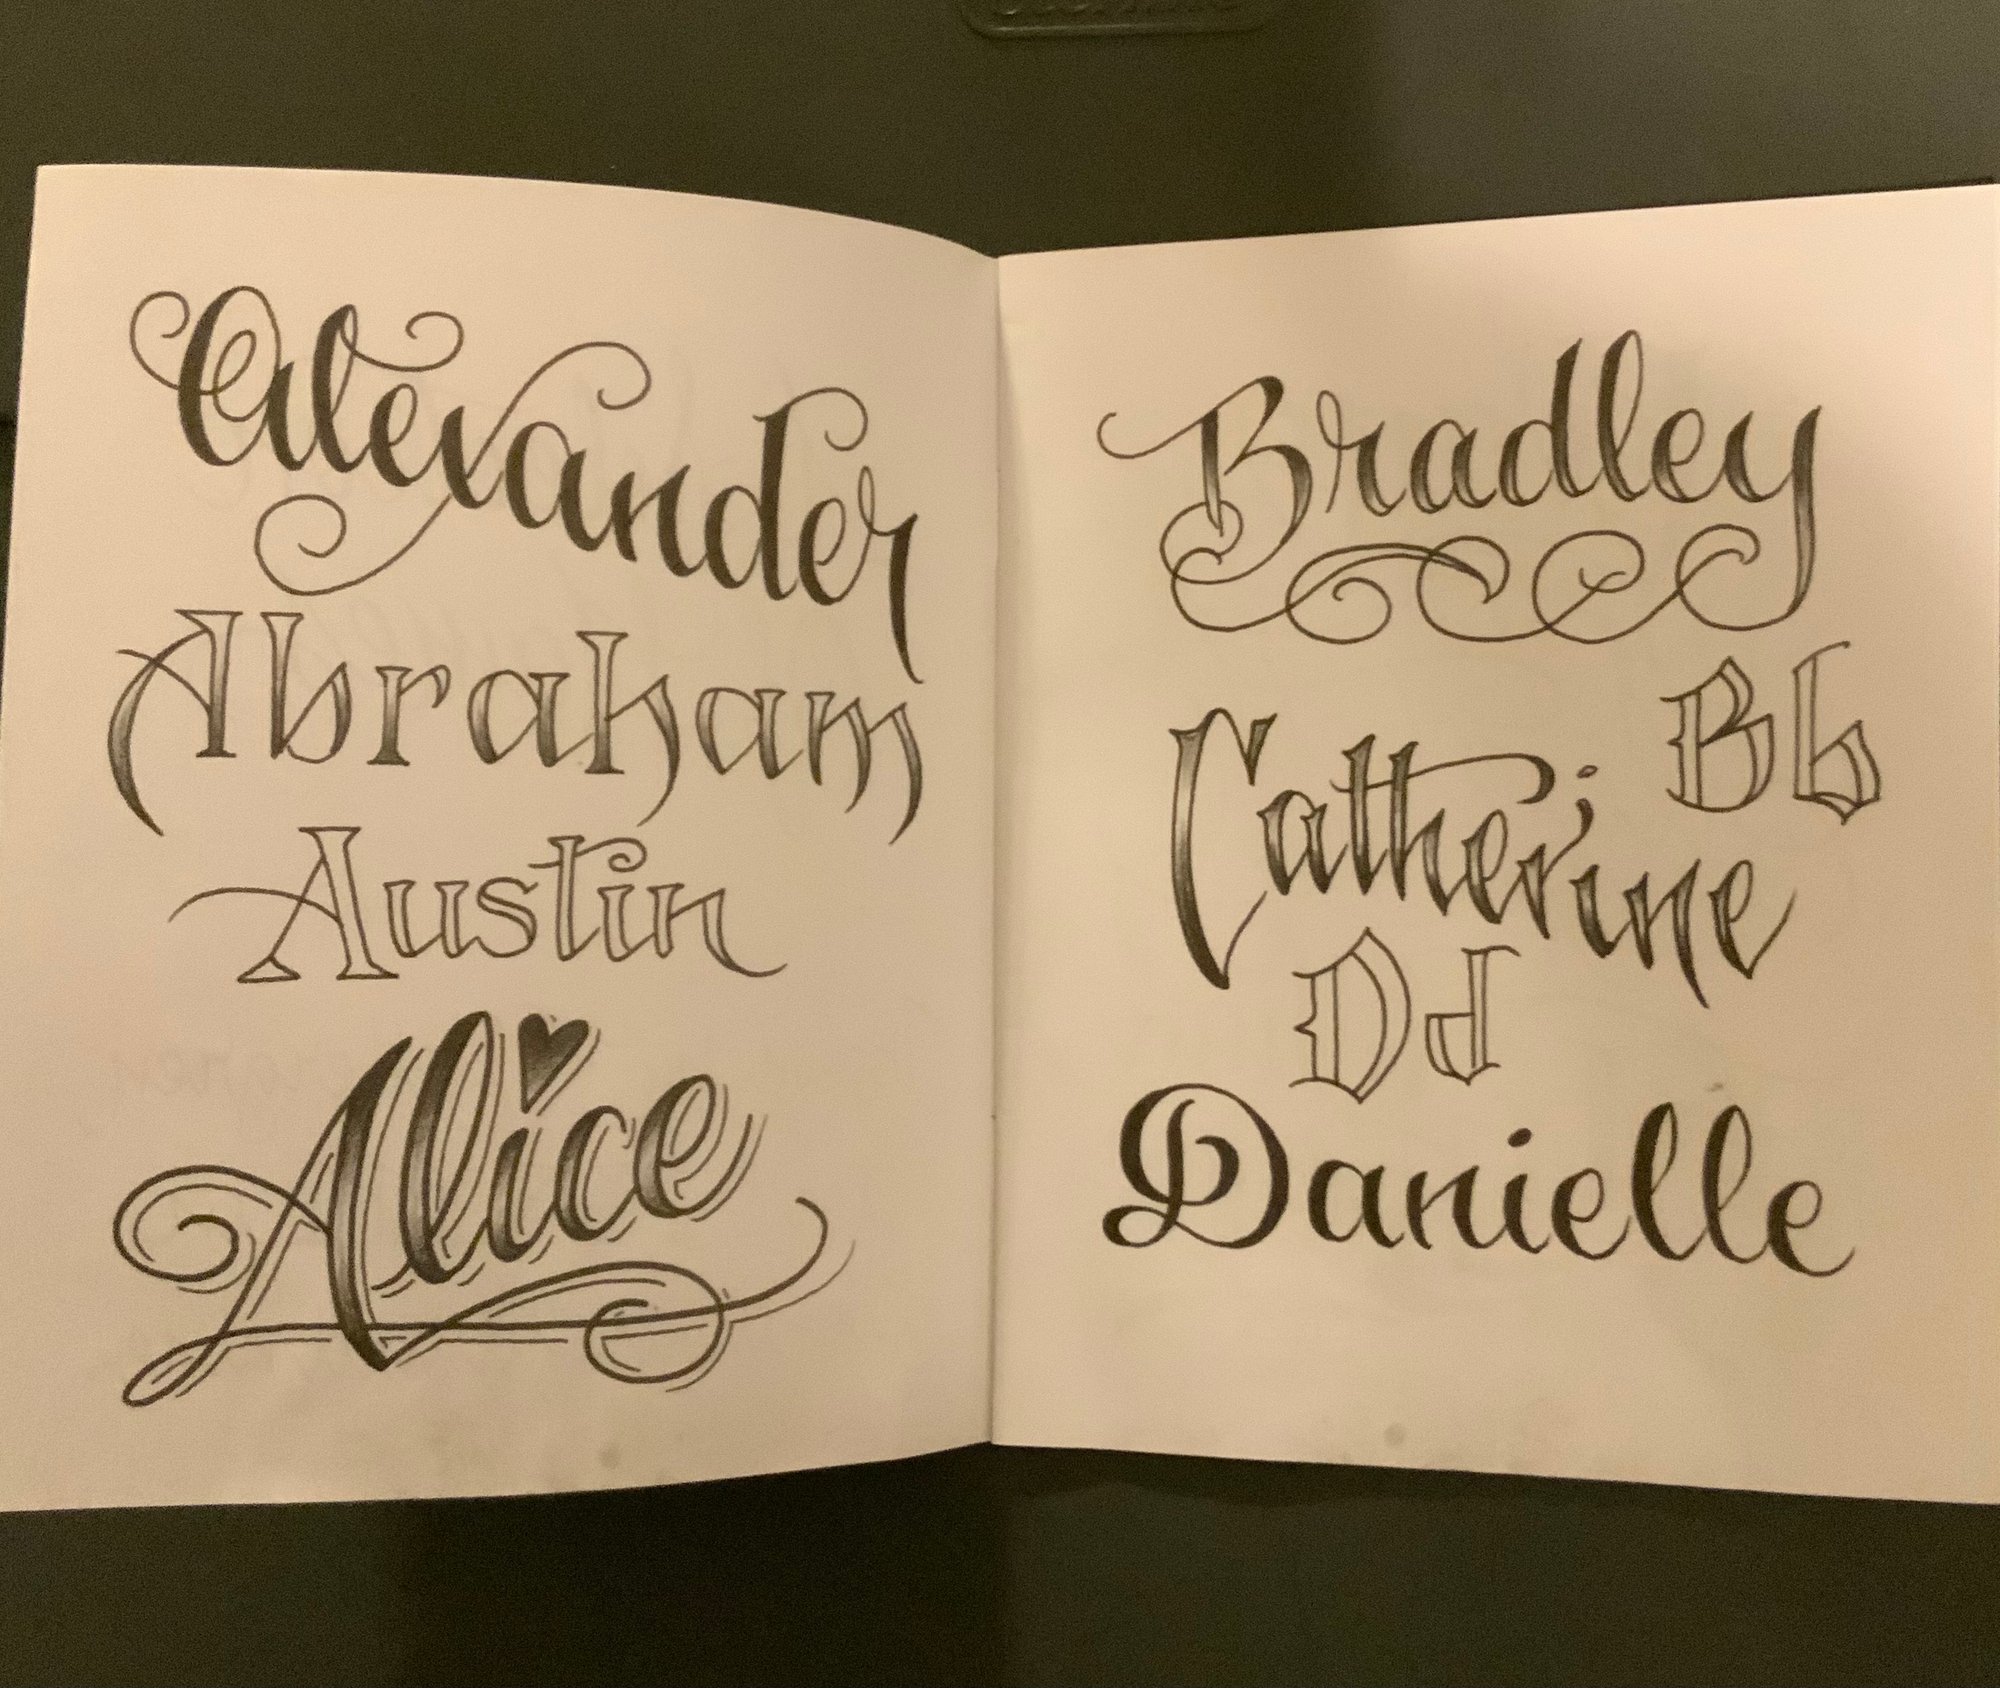 Alexander
Abraham
Austin
Alice
Bradley
Bb
Catherine
Dd
Danielle